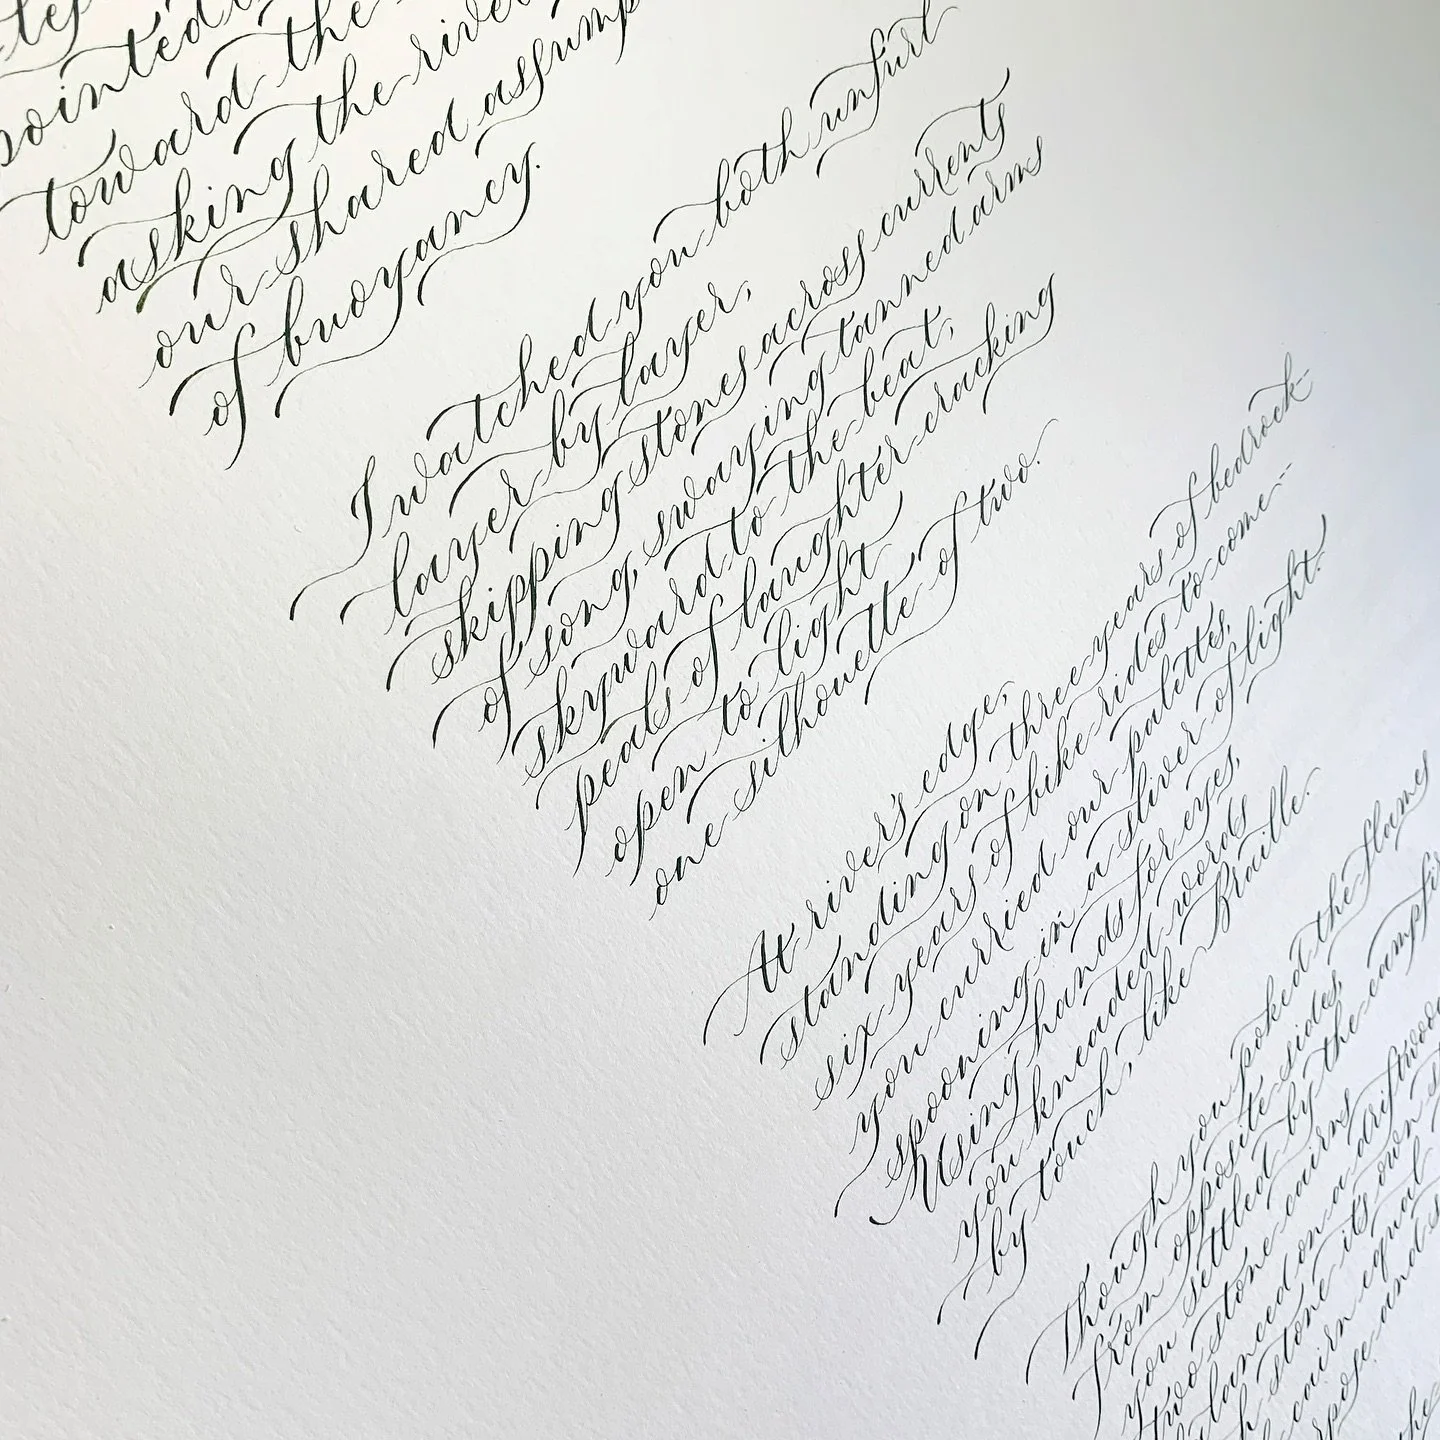 pointed
toward the
asking the river
our shared assump
of buoyancy.
I watched you both unfurl
layer by layer,
skipping stones across currents
of song, swaying tanned arms
skyward to the beat,
peals of laughter cracking
open to light
one silhouette of two.
At river's edge,
standing on three years of bedrock
six years of bike rides to come--
you curried our palettes,
spooning in a sliver of light.
Using hands for eyes,
you kneaded words
by touch, like Braille.
Though you poked the flames
from opposite sides,
you settled by the campfi
two stone cairns
balanced on a driftwood
stone its own
cairn equal
and